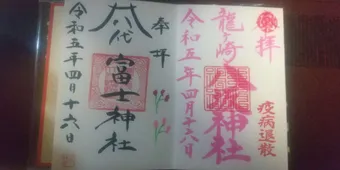 奉拝
龍ケ崎
八坂神社
令和五年四月十六日
疫病退散
奉拝
八代
富士神社
令和五年四月十六日